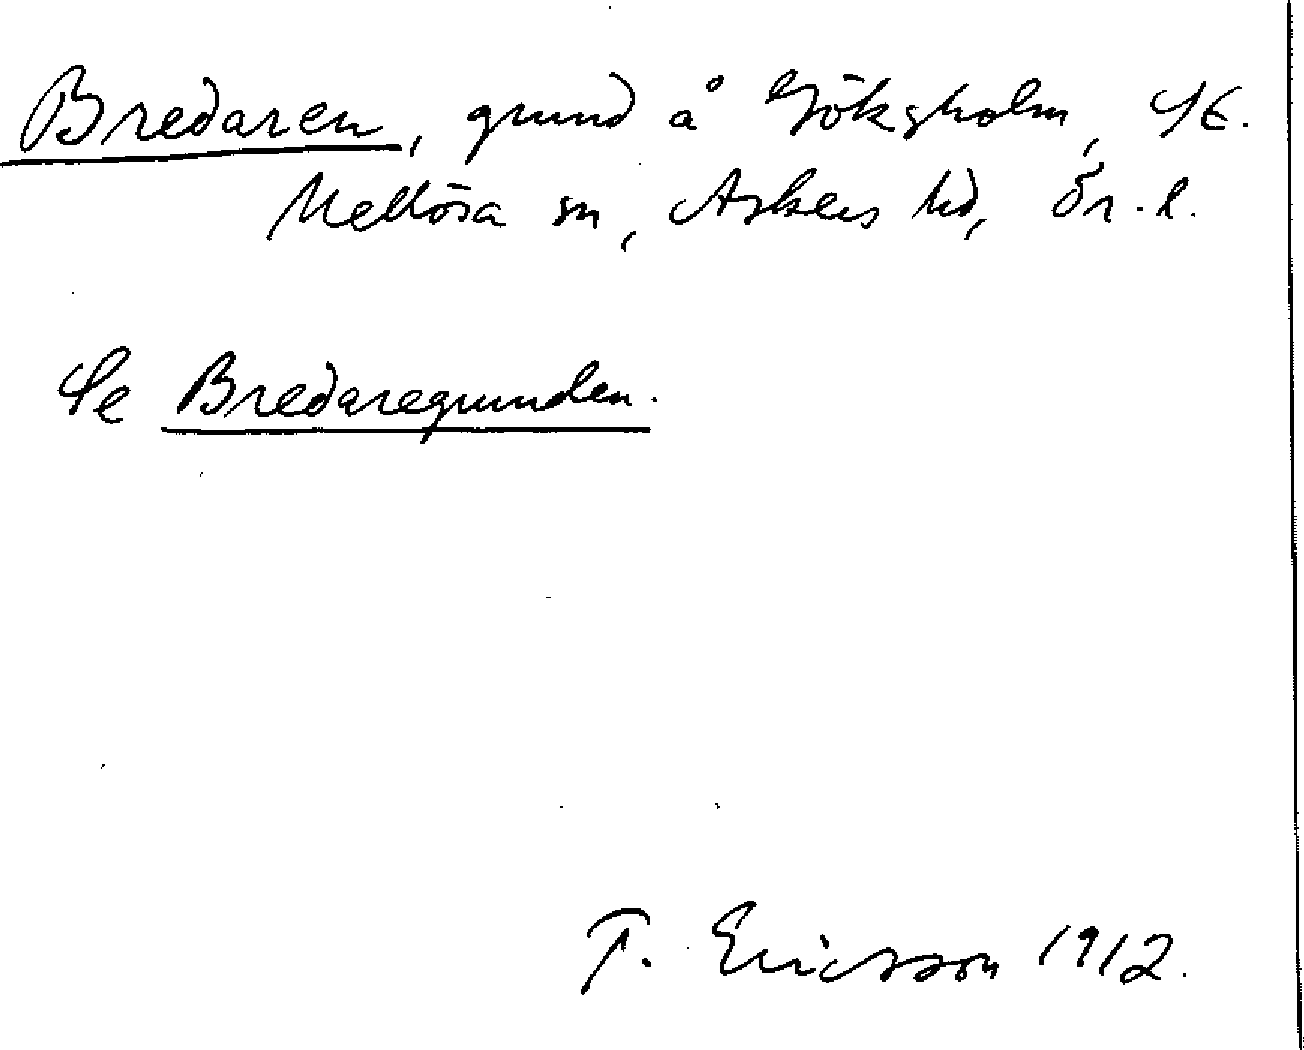 Bredaren, grund å Göksholm, St.
Mellösa sn, Askers hd, Ör. l.
Se Bredaregrunden.
T. Ericsson 1912.